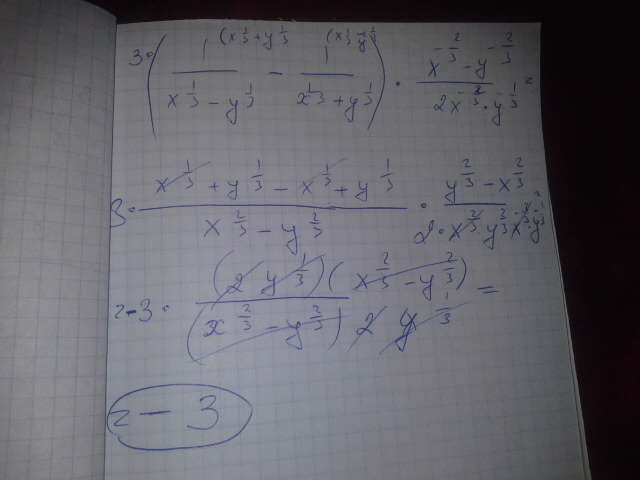 (x^{1/3}+y^{1/3} (x^{1/3}-y^{1/3}
3·(1/(x^{1/3}-y^{1/3}) - 1/(x^{1/3}+y^{1/3})) · (x^{-2/3}-y^{-2/3})/(2x^{-2/3}·y^{-1/3}) =
3· (x^{1/3}+y^{1/3}-x^{1/3}+y^{1/3})/(x^{2/3}-y^{2/3}) · (y^{2/3}-x^{2/3})/(2·x^{2/3}y^{2/3}x^{-2/3}·y^{-1/3}) =
=-3· (2 y^{1/3})(x^{2/3}-y^{2/3})/((x^{2/3}-y^{2/3}) 2 y^{1/3}) =
= - 3